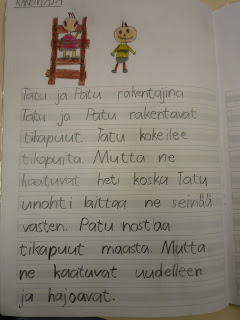 Tatu ja Patu rakentajina
Tatu ja Patu rakentavat
tikapuut. Tatu kokeilee
tikapuita. Mutta ne
kaatuvat heti koska Tatu
unohti laittaa ne seinää
vasten. Patu nostaa
tikapuut maasta. Mutta
ne kaatuvat uudelleen
ja hajoavat.